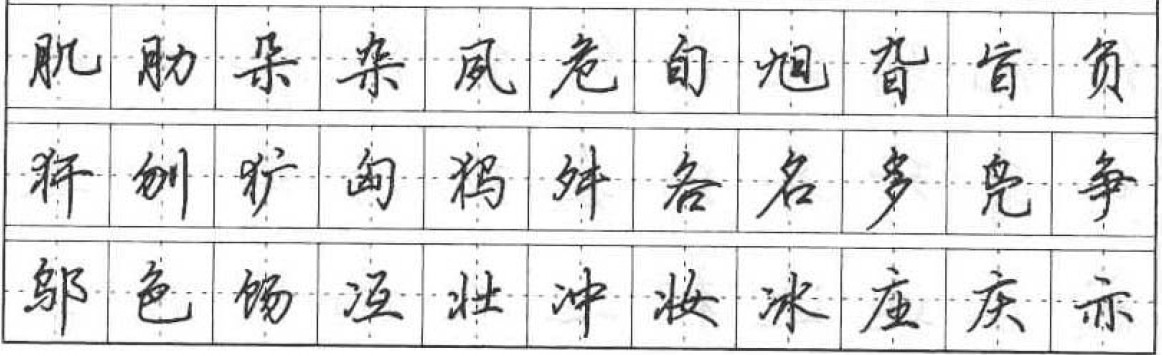 肌肋朵杂夙危旬旭旮旨负
犴刎犷匈犸舛各名多凫争
邬色饧冱壮冲妆冰庄庆亦